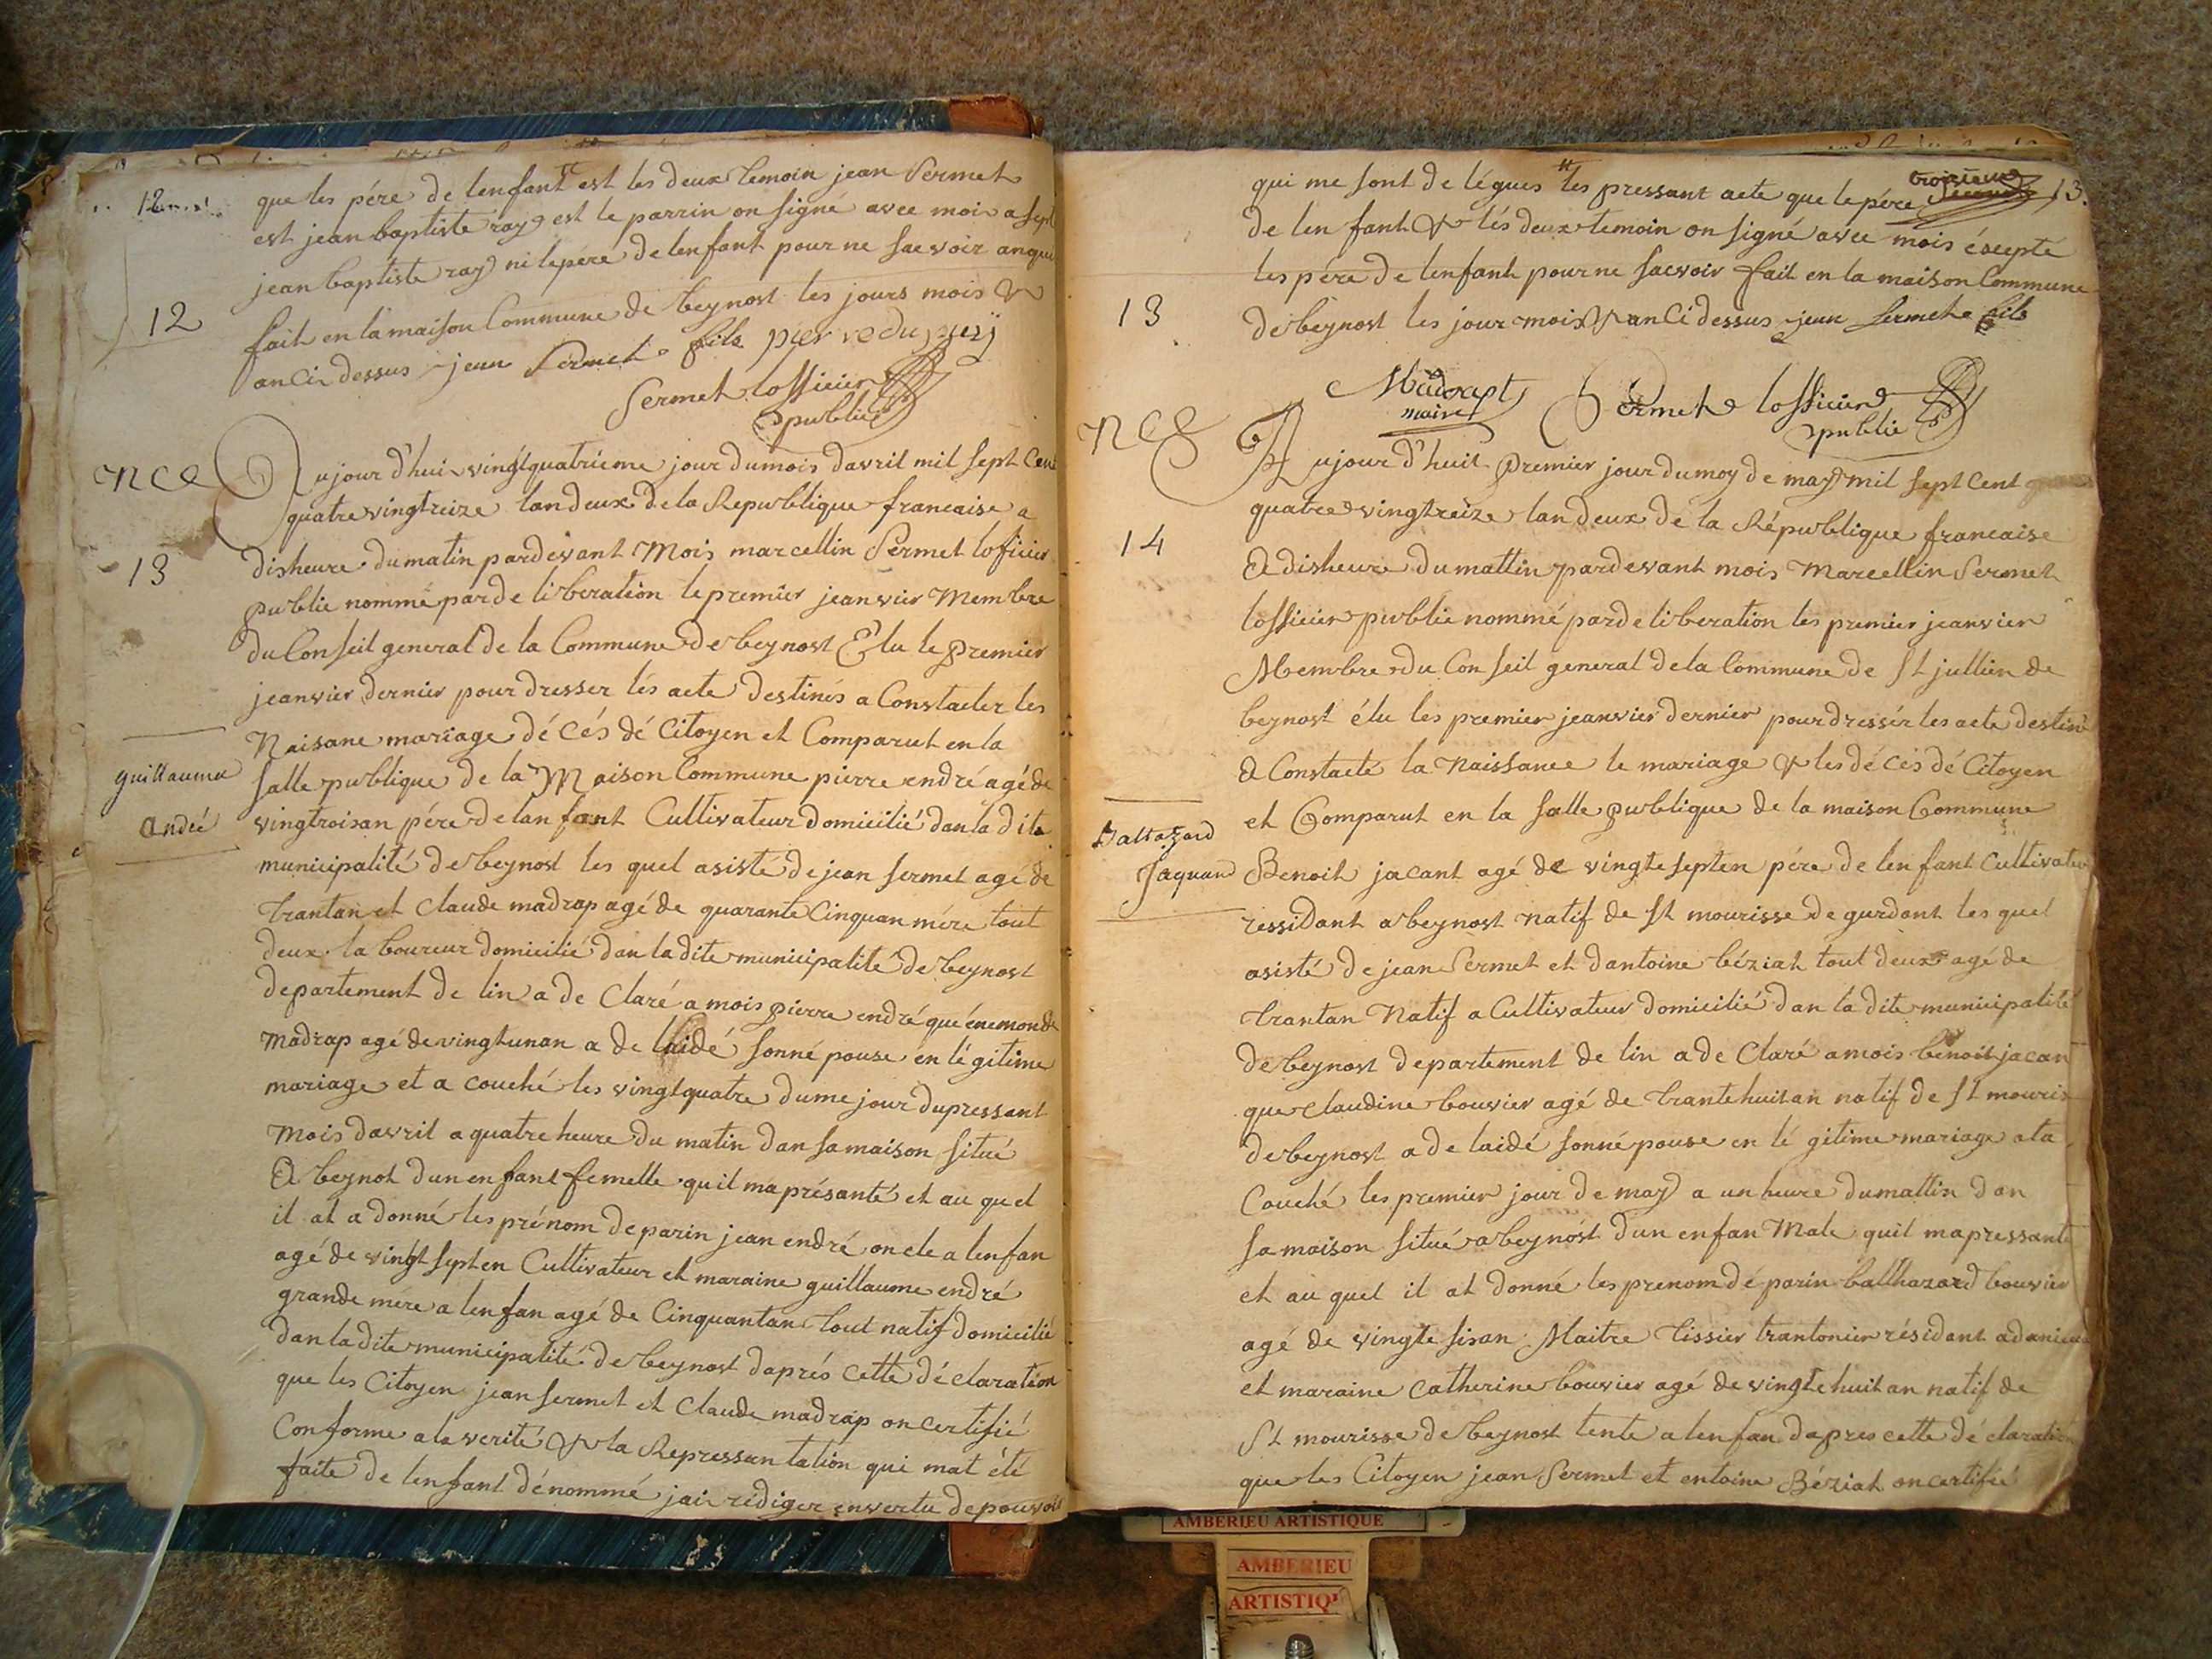 12
que les pére de lenfant est les deux temoin jean Sermet
est jean baptiste ray est le parrin on signé avec mois a sept
jean baptiste ray ni le pére de lenfant pour ne saevoir anqui
12
fait en la maison Commune de beynost les jours mois &
an Ci dessus jean Sermet fils pier re dupuy
Sermet lofficier
public
nce
Aujour d'hui vingtquatrieme jour du mois davril mil sept Cent
quatre vingtreize lan deux de la Republique francaise a
13
disheure du matin pardevant Mois marcellin Sermet loficier
public nommé par de liberation le premier jeanvier Membre
du Conseil general de la Commune de beynost Elu le premier
jeanvier dernier pour dresser lés acte destinés a Constacter les
Naisane mariage dé Cés dé Citoyen et Comparut en la
guillaume
salle publique de la Maison Commune pierre endré agé de
andré
vingtroisan pére de lan fant Cultivateur domicilié dan la dite
municipalité de beynost les quel asisté de jean sermet agé de
trantan et Claude madrap agé de quarante Cinquan mére tout
deux la boureur domicilié dan la dite municipalité de beynost
departement de lin a de Claré a mois pierre endré que énemonde
madrap agé de vingtunan a de laidé sonné pouse en lé gitime
mariage et a couché les vingtquatre dume jour dupressant
Mois davril a quatre heure du matin dan sa maison situé
A beynot dun en fant femelle quil ma présanté et au quel
il at a donné les prénom de parin jean endré oncle a lenfan
agé de vingt septen Cultivateur et maraine guillaume endré
grande mére a lenfan agé de Cinquantan tout natif domicilié
dan ladite municipalité de beynost daprés cette dé claration
que les Citoyen jean sermet et Claude madrap on certifié
Conforme a la verité & la Repressantation qui mat été
faite de lenfant dénommé jai rédiger en vertu de pouvoir
troisieme
13.
qui me sont de légues les pressant acte que le pére
de len fant & lés deux temoin on signé avec mois éscepté
les pére de lenfant pour ne saevoir fait en la maison Commune
13
de beynost les jour mois & an Ci dessus jean sermet fils
Madrapt
maire
Sermet lofficier
public
nce
Aujour d'huit premier jour du moy de may mil sept Cent
quatre vingtreize lan deux de la République francaise
14
A disheure du mattin pardevant mois Marcellin Sermet
lofficier public nommé par de liberation les premier jeanvier
Membre du Conseil general de la Commune de St jullien de
beynost élu les premier jeanvier dernier pour dressér les acte destiné
A Constacté la Naissance le mariage & les dé cés dé Citoyen
et Comparut en la salle publique de la maison Commune
Baltazard
Jaquand
Benoit jacant agé de vingte septen pére de len fant Cultivateur
ressidant a beynost natif de St mourisse de gurdant les quel
asisté de jean Sermet et dantoine béziat tout deux agé de
trantan Natif a Cultivateur domicilié dan la dite municipalité
de beynost departement de lin a de Claré a mois benoit jacan
que Claudine bouvier agé de trantehuitan natif de St mouris
de beynost a de laidé sonné pouse en lé gitime mariage ata
Couché les premier jour de may a un heure du mattin dan
sa maison situé a beynost dun enfan Male quil mapressanté
et au quel il at donné les prenom dé parin balthazard bouvier
agé de vingte sisan Maitre tissier trantonier résidant
et maraine Catherine bouvier agé de vingte huit an natif de
St mourisse de beynost tente a lenfan dapres cette dé claration
que les Citoyen jean Sermet et entoine Béziat on certifié
AMBERIEU ARTISTIQUE
AMBERIEU
ARTISTIQU